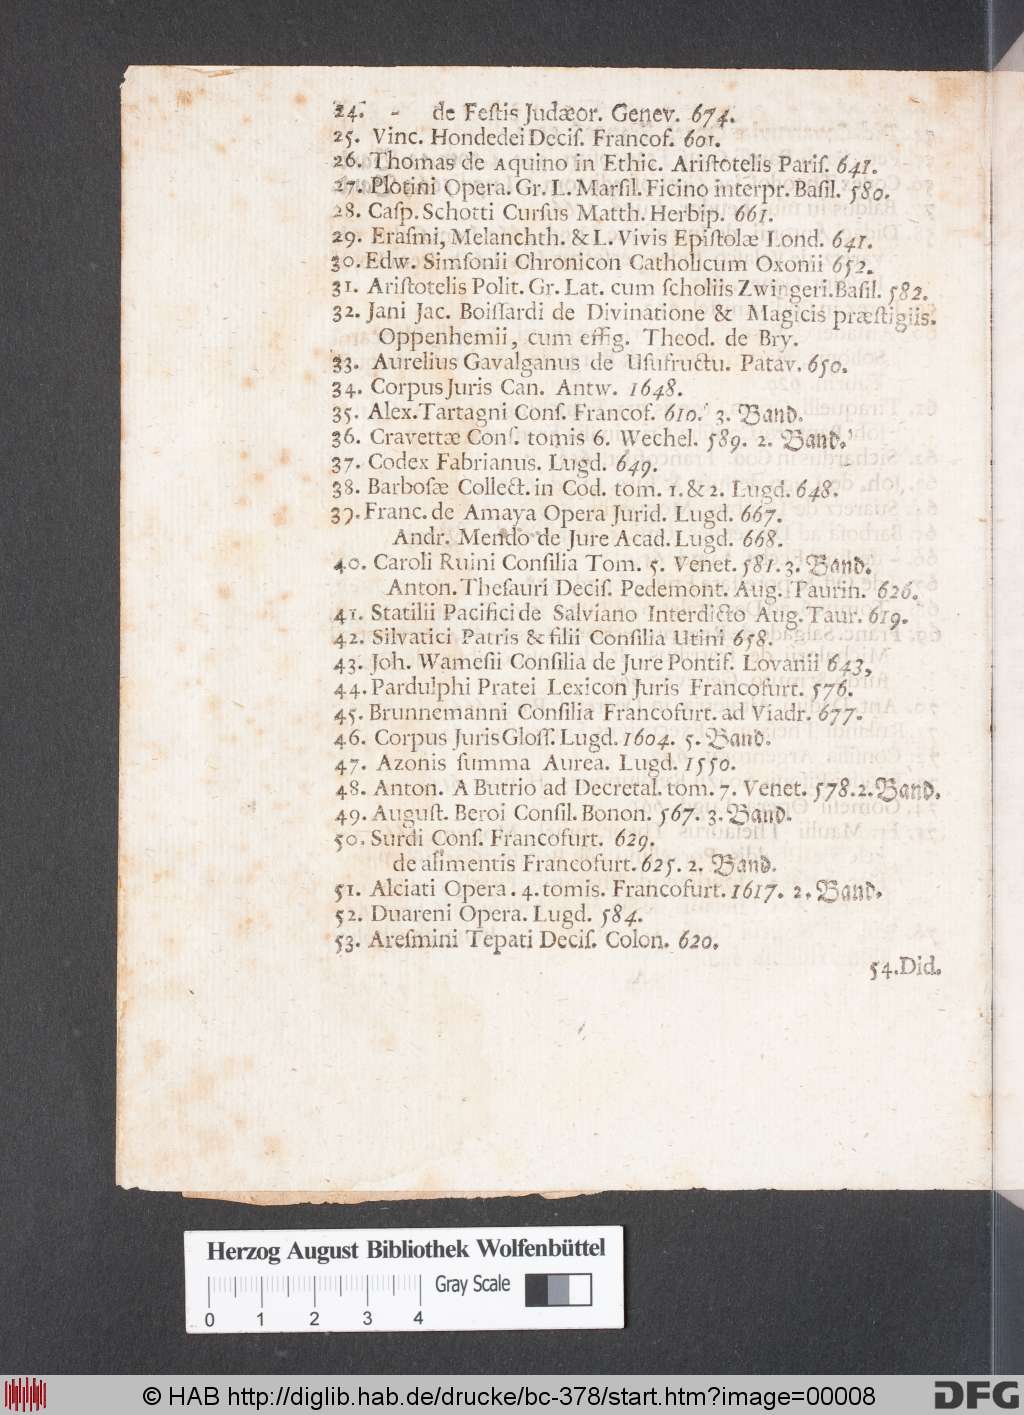 24. - de Feſtis Judæor. Genev. 674.
25. Vinc. Hondedei Deciſ. Francof. 601.
26. Thomas de Aquino in Ethic. Ariſtotelis Pariſ. 641.
27. Plotini Opera. Gr. L. Marſil. Ficino interpr. Baſil. 580.
28. Caſp. Schotti Curſus Matth. Herbip. 661.
29. Eraſmi, Melanchth. & L. Vivis Epiſtolæ Lond. 641.
30. Edw. Simſonii Chronicon Catholicum Oxonii 652.
31. Ariſtotelis Polit. Gr. Lat. cum ſcholiis Zwingeri. Baſil. 582.
32. Jani Jac. Boiſſardi de Divinatione & Magicis præſtigiis.
Oppenhemii, cum effig. Theod. de Bry.
33. Aurelius Gavalganus de Uſufructu. Patav. 650.
34. Corpus Juris Can. Antw. 1648.
35. Alex. Tartagni Conſ. Francof. 610. 3. Band.
36. Cravettæ Conſ. tomis 6. Wechel. 589. 2. Band.
37. Codex Fabrianus. Lugd. 649.
38. Barboſæ Collect. in Cod. tom. 1. & 2. Lugd. 648.
39. Franc. de Amaya Opera Jurid. Lugd. 667.
Andr. Mendo de Jure Acad. Lugd. 668.
40. Caroli Ruini Conſilia Tom. 5. Venet. 581. 3. Band.
Anton. Theſauri Deciſ. Pedemont. Aug. Taurin. 626.
41. Statilii Pacifici de Salviano Interdicto Aug. Taur. 619.
42. Silvatici Patris & filii Conſilia Utini 658.
43. Joh. Wameſii Conſilia de Jure Pontif. Lovanii 643,
44. Pardulphi Pratei Lexicon Juris Francofurt. 576.
45. Brunnemanni Conſilia Francofurt. ad Viadr. 677.
46. Corpus Juris Gloſſ. Lugd. 1604. 5. Band.
47. Azonis ſumma Aurea. Lugd. 1550.
48. Anton. A Butrio ad Decretal. tom. 7. Venet. 578. 2. Band.
49. Auguſt. Beroi Conſil. Bonon. 567. 3. Band.
50. Surdi Conſ. Francofurt. 629.
de alimentis Francofurt. 625. 2. Band.
51. Alciati Opera. 4. tomis. Francofurt. 1617. 2. Band.
52. Duareni Opera. Lugd. 584.
53. Areſmini Tepati Deciſ. Colon. 620.
54. Did.
Herzog August Bibliothek Wolfenbüttel
Gray Scale
0 1 2 3 4
© HAB http://diglib.hab.de/drucke/bc-378/start.htm?image=00008
DFG